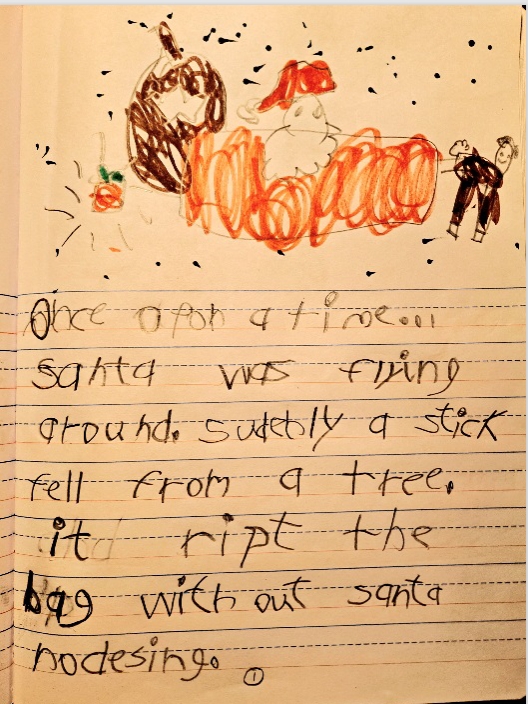 Once apon a time...
santa was flying
around. sudebly a stick
fell from a tree.
it ript the
bag with out santa
nodesing.
1